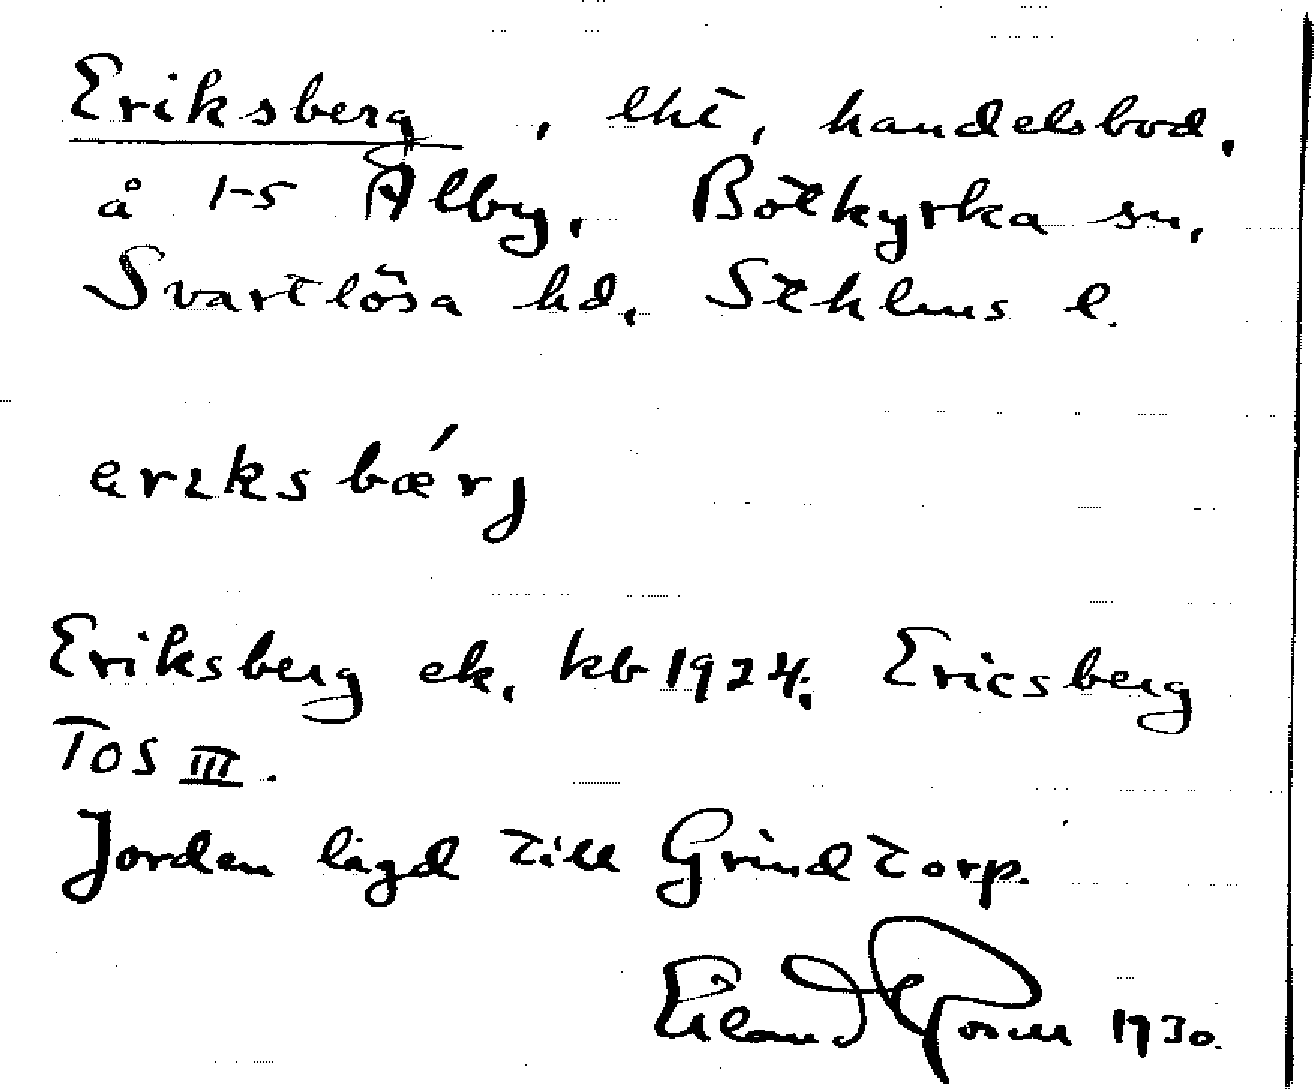 Eriksberg, lht, handelsbod,
å 1-5 Alby, Botkyrka sn,
Svartlösa hd, Sthlms l.
erıksbǽrj
Eriksberg ek. kb 1924. Ericsberg
TOS III.
Jorden lagd till Grindtorp.
Erland Rosell 1930.